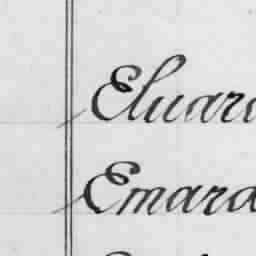 Eluard
Emard